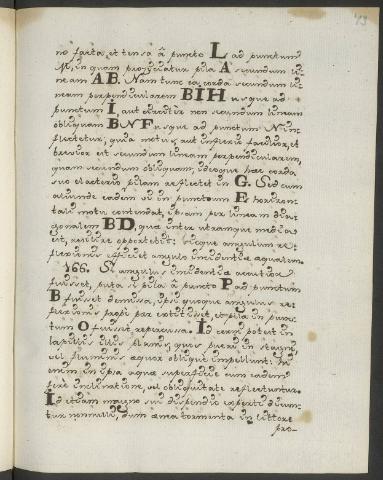 73
no facta, et tensa à puncto L ad punctum
M, in quam projiciatur pila A secundum li-
neam AB. Nam tunc ea corda secundum li-
neam perpendicularem BIH usque ad
punctum I, aut circiter non secundum lineam
obliquam BNF usque ad punctum N in-
flectetur; quia motus aut inflexio facilior, et
brevior est secundum lineam perpendicularem,
quam secundum obliquam, ideoque hæc corda
suo elaterio pilam reflectet in G. Sed cum
aliunde eadem sit in punctum E horizon-
tali motu contendat, ipsam per lineam dia-
gonalem BD, quæ inter utramque media
est, resilire oportebit: sicque angulum re-
flexionis efficiet angulo incidentiæ æqualem.
166. Si angulus incidentiæ acutior
fuisset, puta si pila à puncto P ad punctum
B fuisset demissa, ipse quoque angulus re-
flexionis propè par extitisset, et pila in punc-
tum O fuisset repercussa. Id cerni potest in
lapillis illis planis, quos pueri in stagni,
vel fluminis æquor obliquè impellunt: hi
enim in ipsa aquæ superficie cum eadem
ferè inclinatione, vel obliquitate reflectuntur.
Id etiam magno sui dispendio experti dicun-
tur nonnulli, dum ænea tormenta in littore
pro-